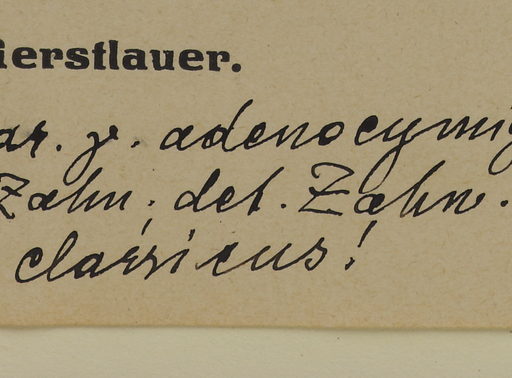 ierstlauer.
ar. γ. adenocymig
Zahn; det. Zahn.
classicus!